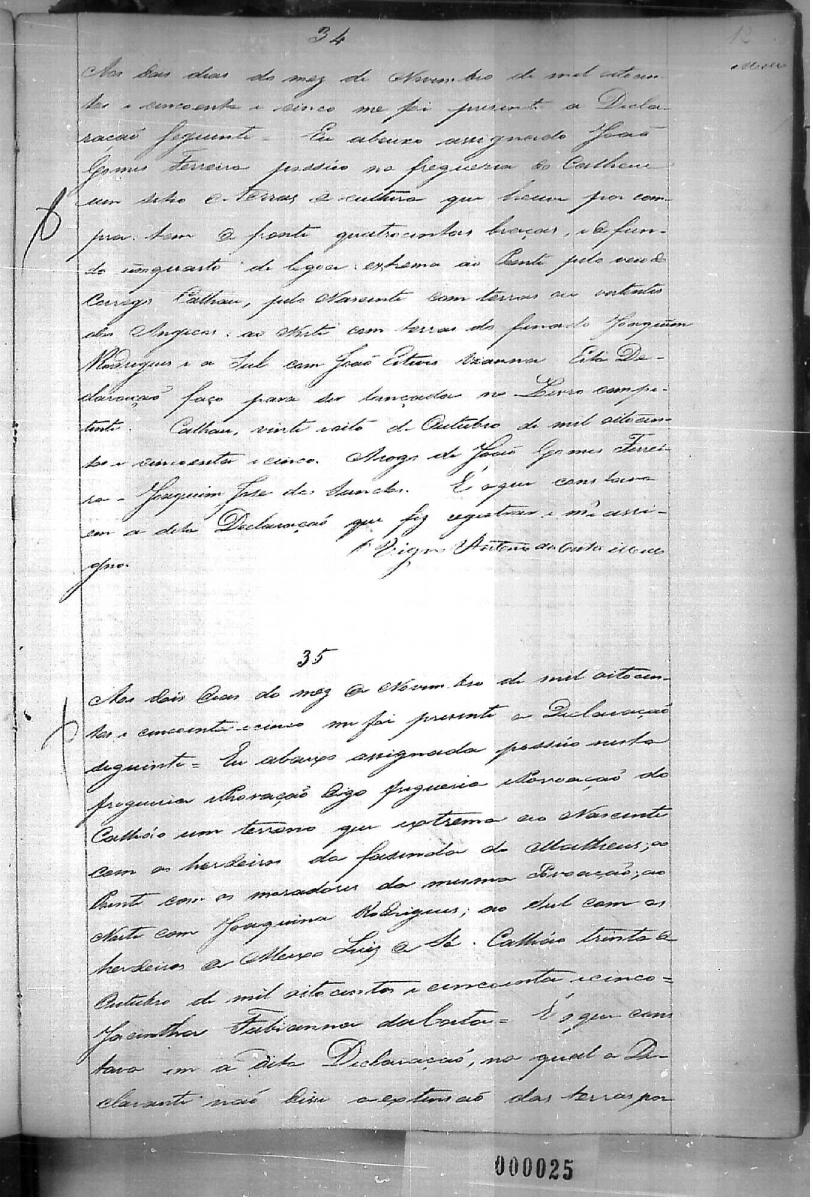 34
12
Aos dois dias do mez de Novembro de mil oitocen-
tos e cincoenta e cinco me foi presente a Decla-
ração seguinte = Eu abaixo assignado João
Gomes Ferreira possúo na freguezia do Calhau
um sitio e terras de cultura que houve por com-
pra: tem de frente quatrocentas braças, e de fun-
do um quarto de legoa: extrema ao Poente pelo veio do
Corrego Calhau, pelo Nascente com terras ou vertentes
dos Angicos. ao Norte com terras do finado Joaquim
Rodrigues e a Sul com João Esteves Vianna Esta De-
claração faço para ser lançada no Livro compe-
tente. Calhau, vinte e oito de Outubro de mil oitocen-
tos e cincoenta e cinco. Arogo de João Gomes Ferrei-
ra = Joaquim Jose dos Santos. É o que constava
em a dita Declaração que fiz registrar e me assi-
gno.
O Vigro Antonio da Costa
35
Aos dois dias do mez de Novembro de mil oitocen-
tos e cincoenta e cinco me foi presente a Declaração
seguinte = Eu abaixo assignada possúo nesta
freguezia Povoação digo freguezia e Povoação do
Calháo um terreno que extrema ao Nascente
com os herdeiros da fasenda do Matheus; ao
Poente com os moradores da mesma Povoação; ao
Norte com Joaquina Rodrigues; ao Sul com os
herdeiros de Luiz de Sá. Calháo trinta de
Outubro de mil oitocentos e cincoenta e cinco =
Jacintha Fabianna da Costa = É o que cons
tava em a dita Declaração, na qual a De-
clarante não disse a extensão das terras por
000025